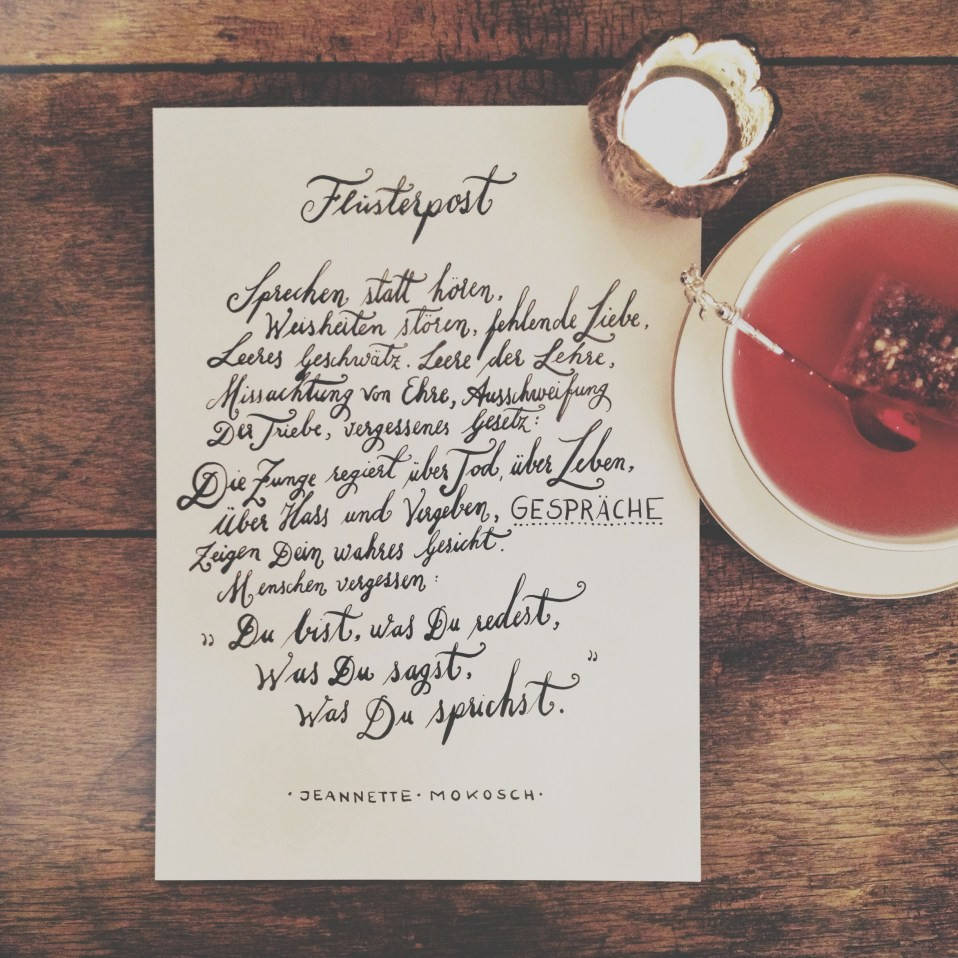 Flüsterpost
Sprechen statt hören,
Weisheiten stören, fehlende Liebe,
Leeres Geschwätz. Leere der Lehre,
Missachtung von Ehre, Ausschweifung
Der Triebe, vergessenes Gesetz:
Die Zunge regiert über Tod, über Leben,
Über Hass und Vergeben, GESPRÄCHE
Zeigen Dein wahres Gesicht.
Menschen vergessen:
„Du bist, was Du redest,
Was Du sagst,
Was Du sprichst.”
· JEANNETTE · MOKOSCH ·